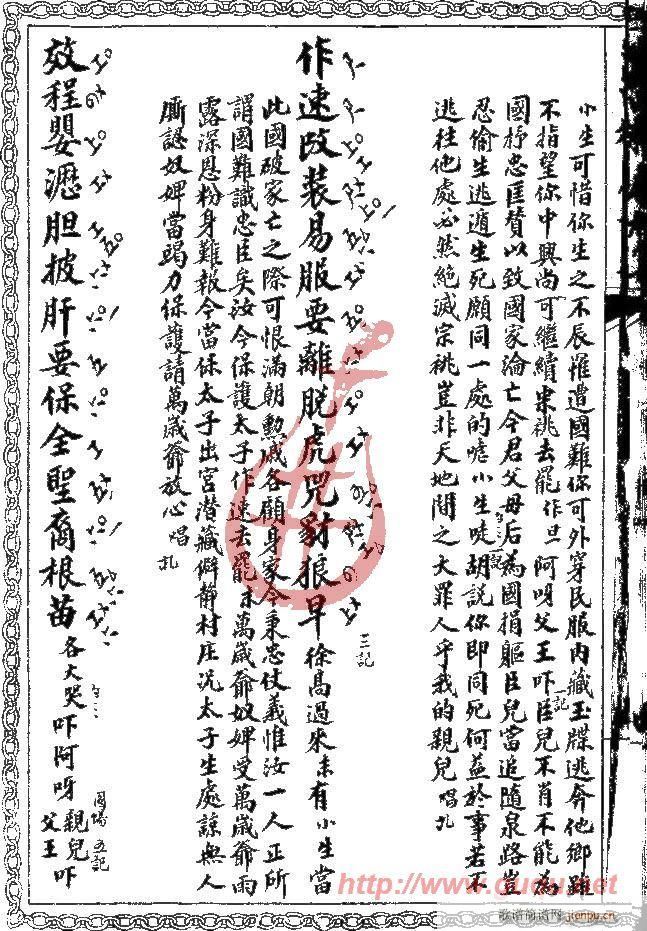 小生可惜你生之不辰罹遭國難你可外穿民服內藏玉牒逃奔他鄉雖
不指望你中興尚可繼續宗祧去罷作旦阿呀父王吓臣兒不肖不能為
一記
國抒忠匡贊以致國家淪亡今君父母后為國捐軀臣兒當追隨泉路豈
忍偷生逃遁生死願同一處的嚛小生唗胡說你即同死何益於事若不
逃往他處必然絕滅宗祧豈非天地間之大罪人乎我的親兒唱尺
作速改裝易服要離脫虎咒豺狼早徐高過來末有小生當
三記
此國破家亡之際可恨滿朝勲戚各顧身家今秉忠仗義惟汝一人正所
謂國難識忠臣矣汝今保護太子作速去罷末萬歲爺奴婢受萬歲爺雨
露深恩粉身難報今當保太子出宮潛藏僻靜村庄況太子生處諒無人
廝認奴婢當竭力保護請萬歲爺放心唱尺
效程嬰瀝胆披肝要保全聖裔根苗各大哭吓阿呀親兒吓父王
同場五記
http://www.guqu.net
歌谱简谱网 jianpu.cn